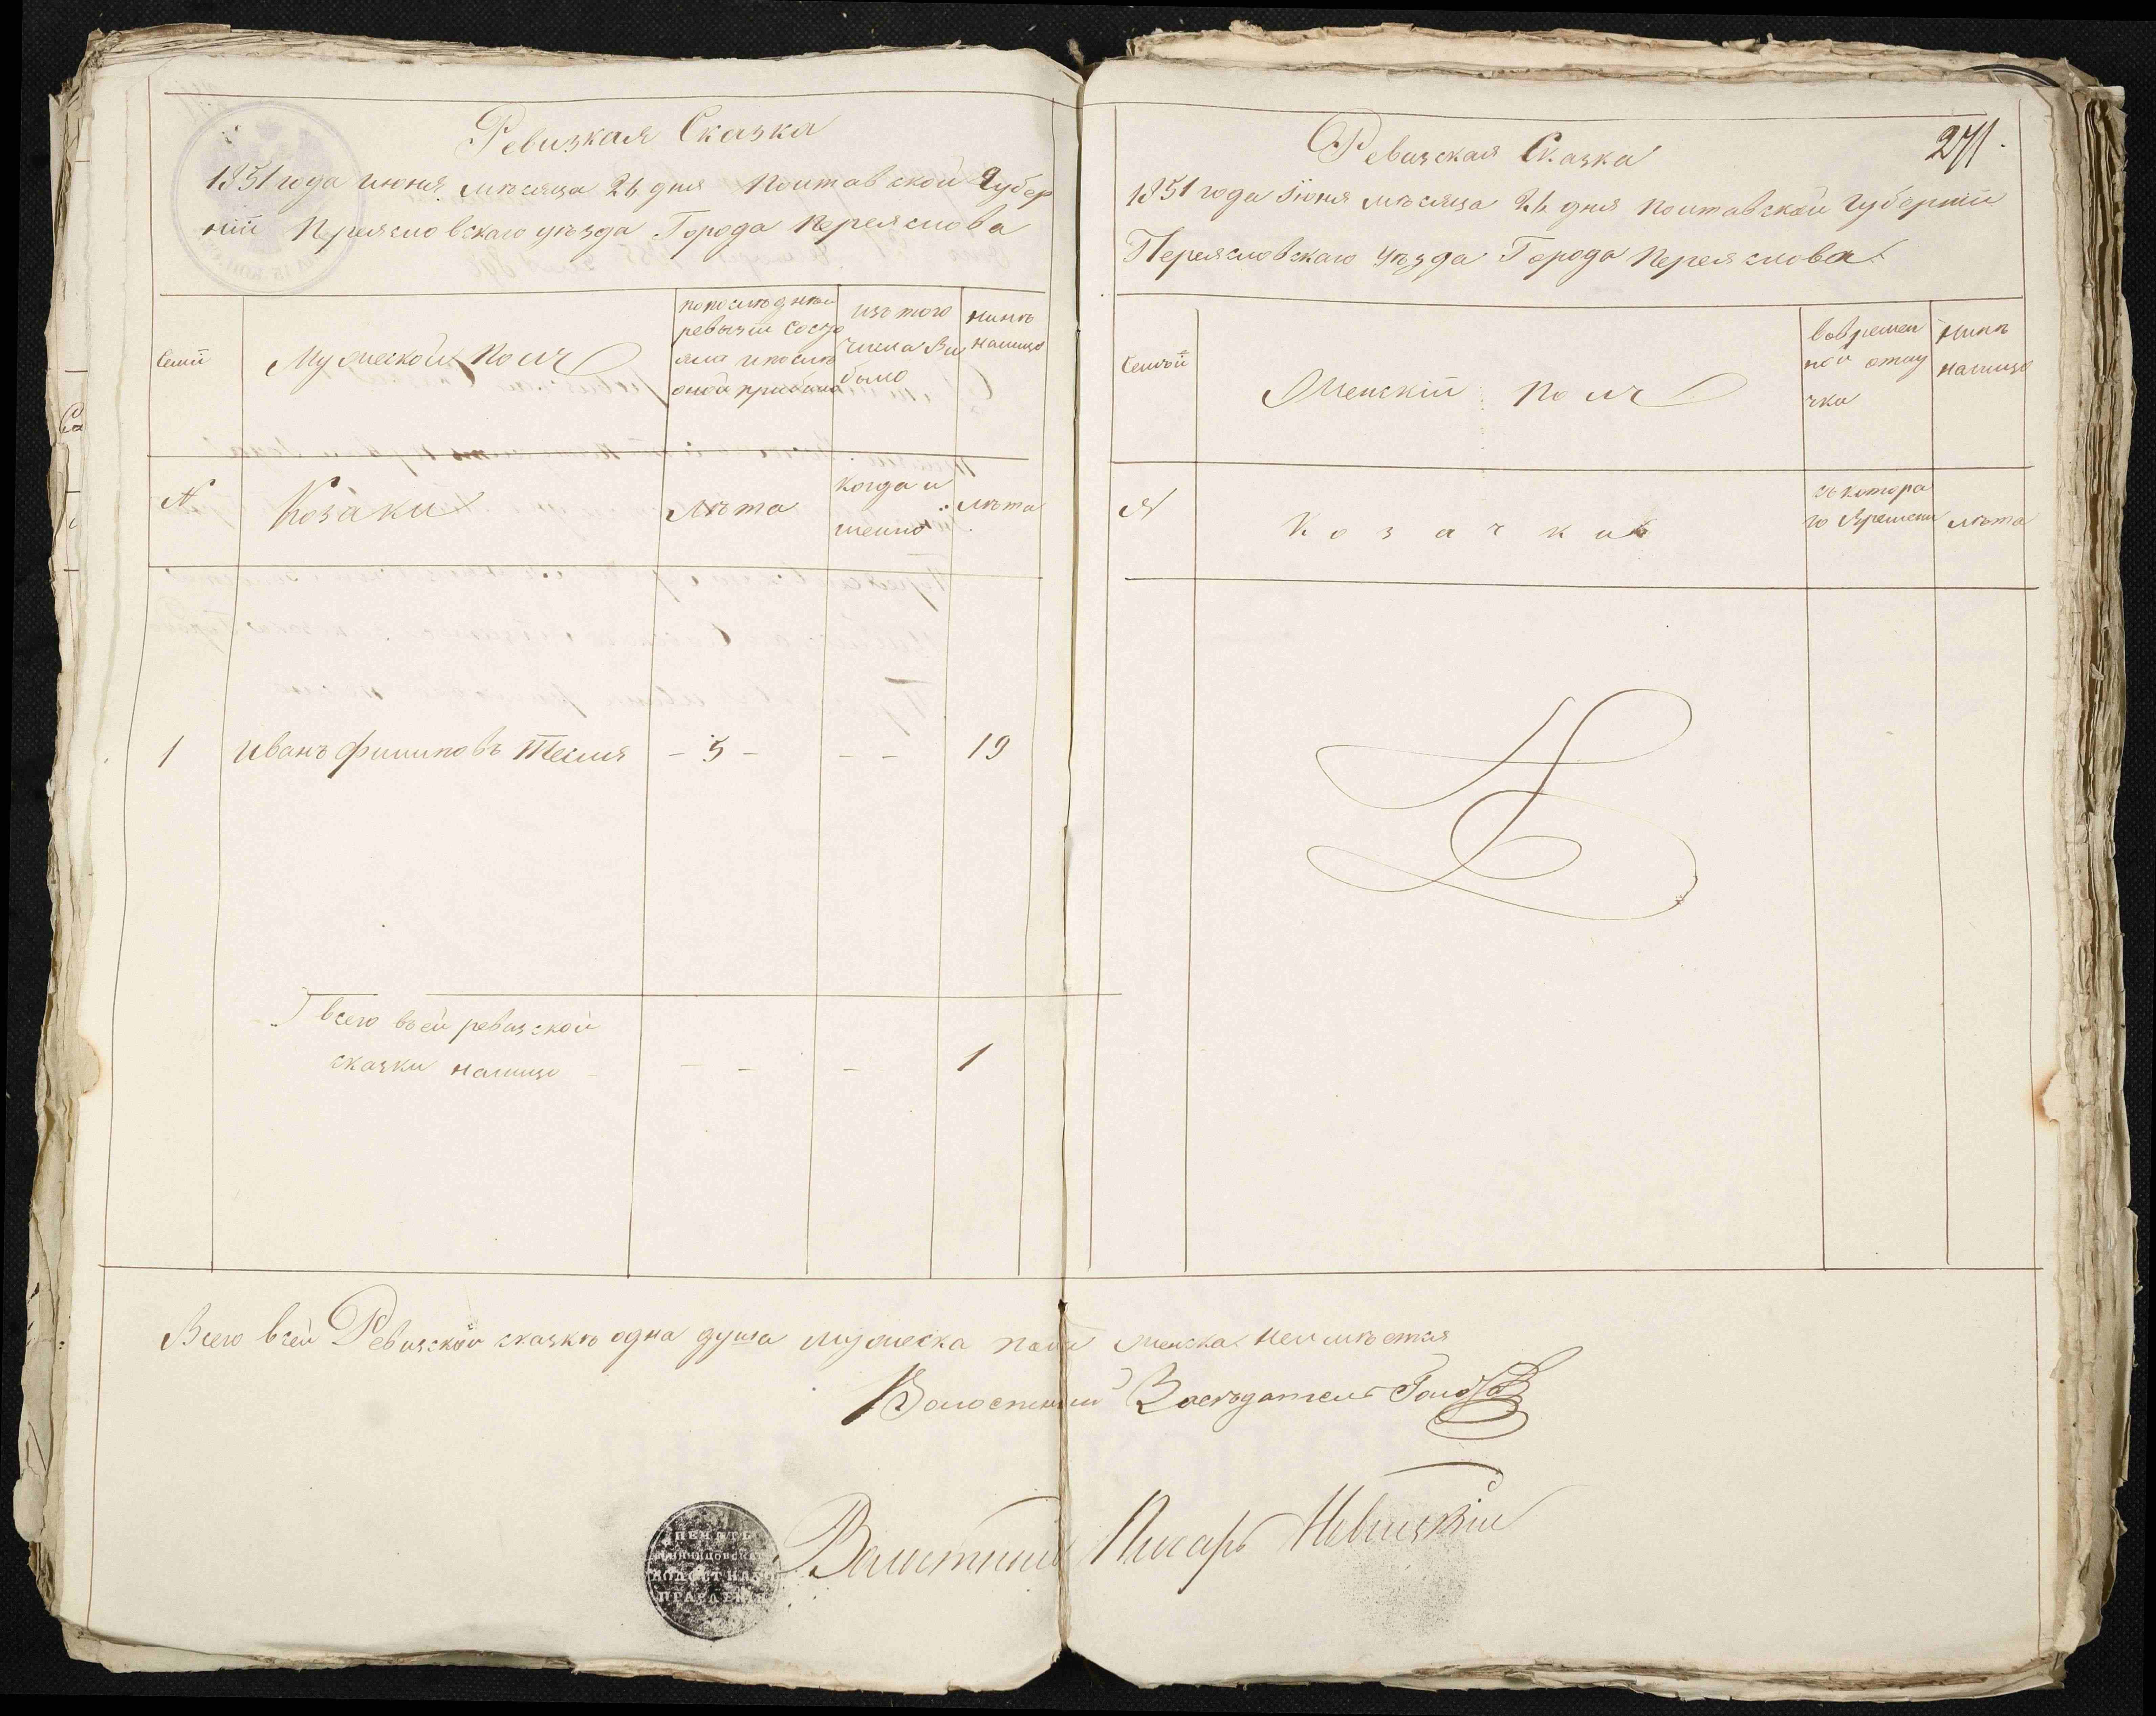 Ревизкая Сказка
1851 года июня мѣсяца 26 дня Полтавской Губер
нии Переясловскаго уѣзда Города Переяслова
Семьи
Мужеской Полъ
попоследней
ревызии состо
яла и после
оной прибыло
изъ того
числа вы
было
нынѣ
налицо
№
Козаки
Лѣта
Когда и
менно
лѣта
1
Иванъ Филиповъ Тесля
- 5 -
- -
19
Всего въ сей ревизской
сказки налицо
- -
-
1
271.
Ревизская Сказка
1851 года Июня мѣсяца 26 дня Полтавской Губернии
Переясловскаго Уѣзда Города Переяслова
Семьй
Женский Полъ
вовремен
ной отлу
чки
нынѣ
налицо
№
Козачки
съ котора
го Времени
лѣта
Всего в сей Ревизской сказкѣ одна душа мужеска пола женска неимѣется
Волостный Заседатель
Волостный Писарь
ПЕЧАТЬ
ВОЛОСТНАГО
ПРАВЛЕНИЯ